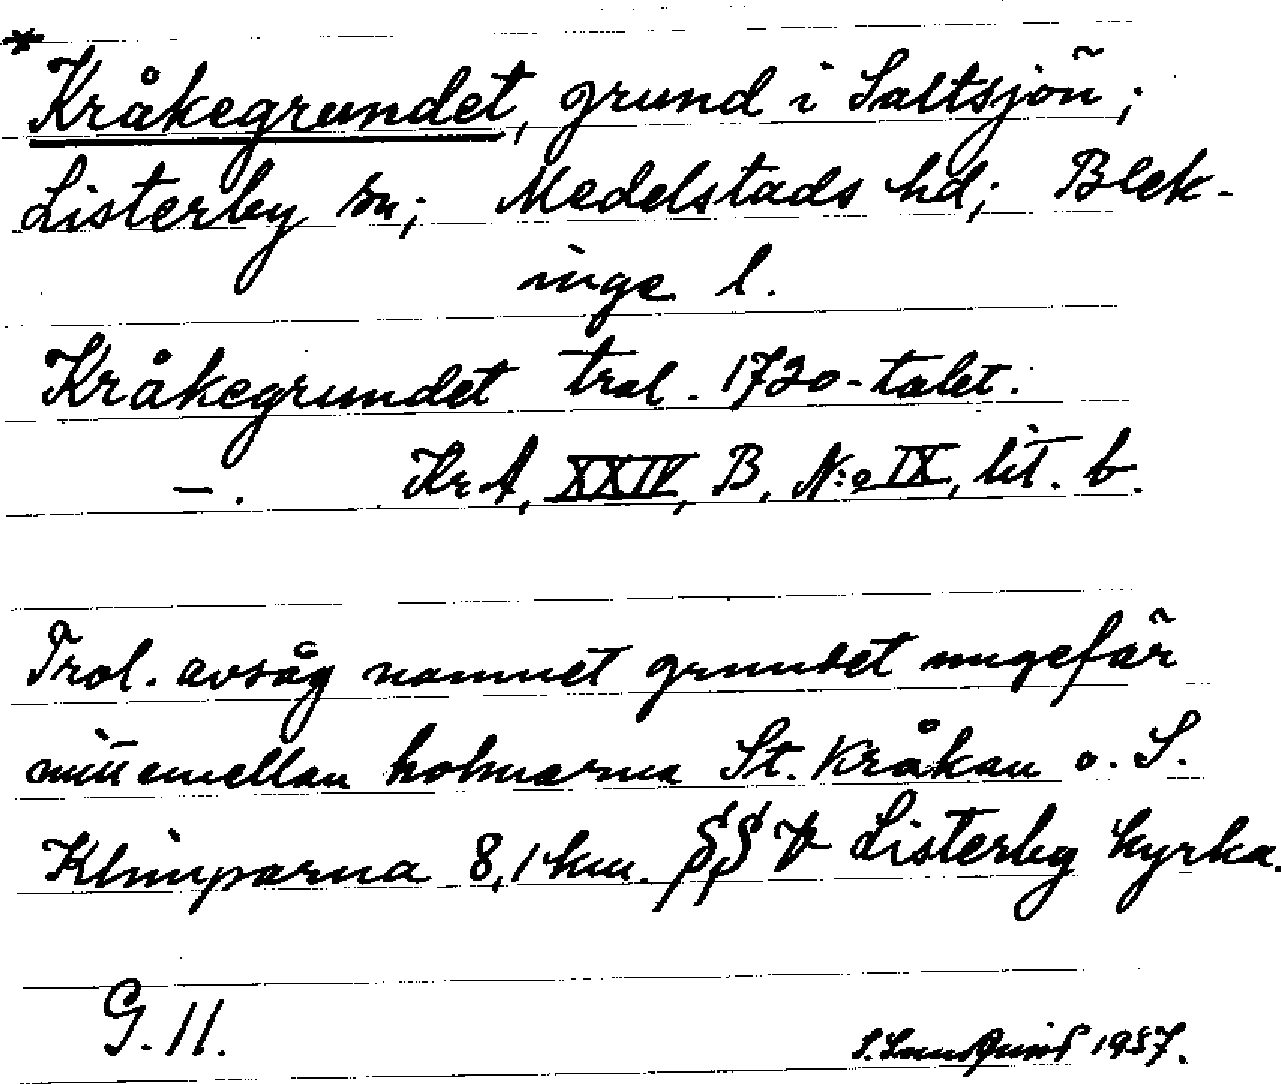 *Kråkegrundet, grund i Saltsjön;
Listerby sn; Medelstads hd; Blek-
inge l.
Kråkegrundet trol. 1720-talet.
—. KrA, XXIV, B, N:o IX, lit. b.
Trol. avsåg namnet grundet ungefär
mitt emellan holmarna St. Kråkan o. S.
Klimparna 8,1 km. SSV Listerby kyrka.
G. 11.
1957.